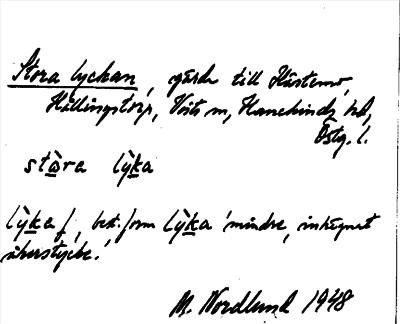 Stora lyckan, gärde till Hästemo,
Hällingstorp, Vists sn, Hanekinds hd,
Östg. l.
stὼra lỳka
lỳka f, best. form lỳka 'mindre, inhägnat
åkerstycke.'
M. Nordlund 1948